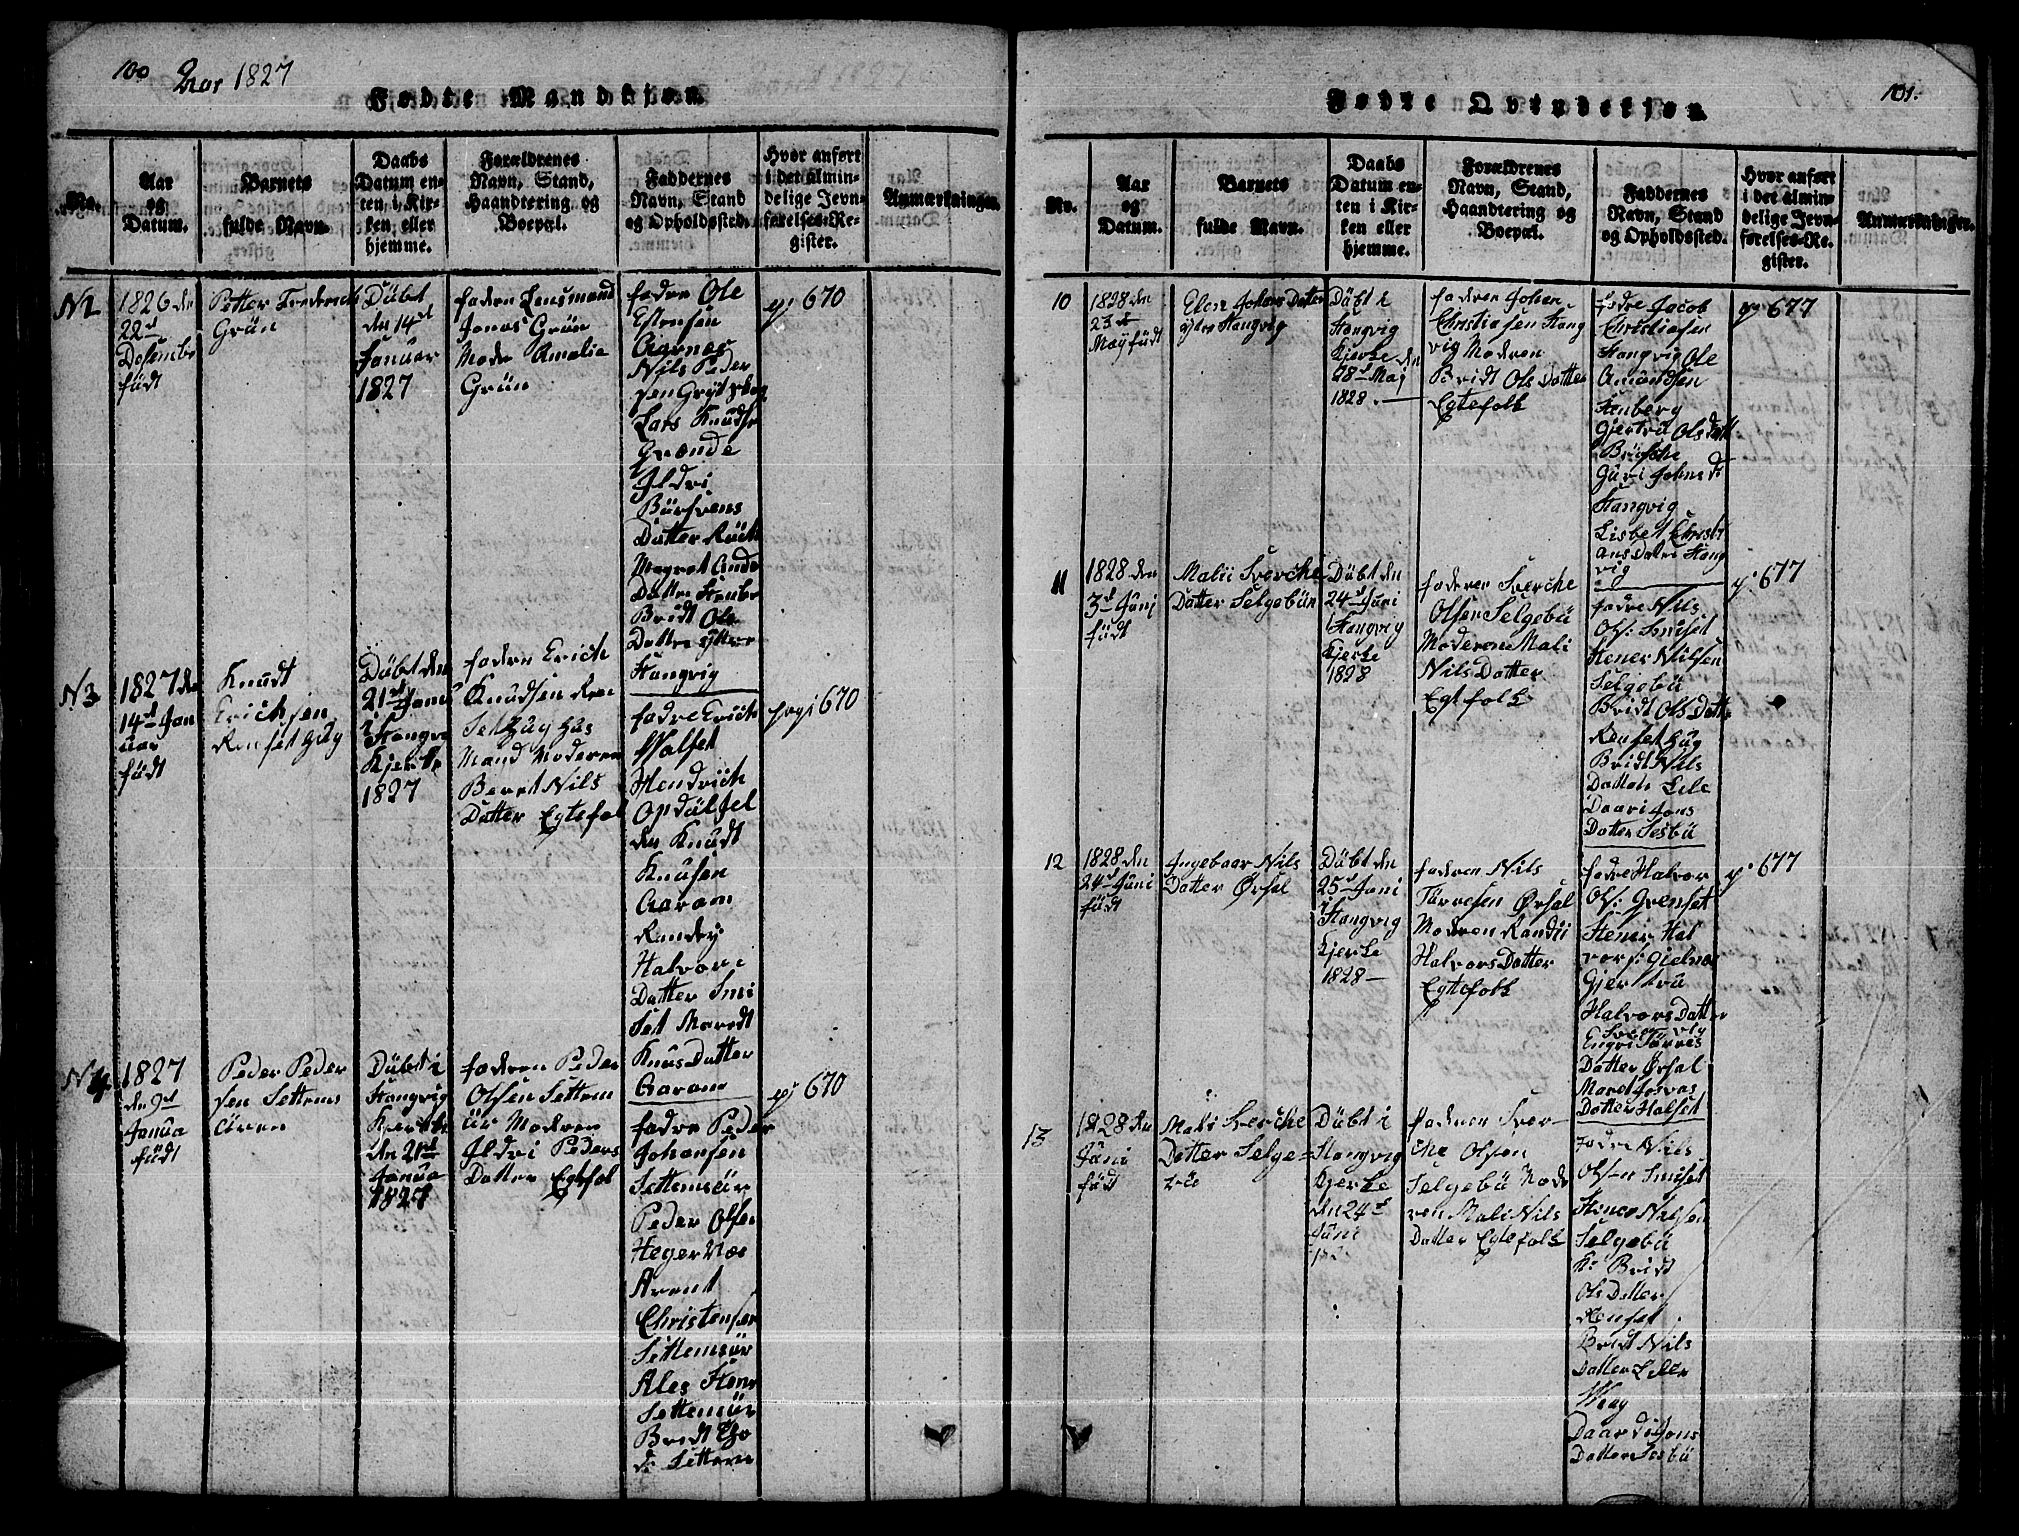 100 Aar 1827
Fødte Mandkjøn.
No.
Aar
og
Datum.
Barnets
fulde Navn.
Daabs
Datum en-
ten i Kir-
ken eller
hjemme.
Forældrenes
Navn, Stand,
Haandtering og
Boepæl.
Faddernes
Navn, Stand
og Opholdssted.
Hvor anført
i det almin-
delige Jevn-
førelses-Re-
gister.
Anmærkninger.
N2
1826 den
22d
Desember
født
Petter Frederich
Grün
Dübt
den 14d
Januar
1827
fadren Lensmand
Jonas Grün
Modr Amalia
Grün
fadre Ole
Estensen
Aarnæs
Nils Peder
sen Grytskog
Lars Knudsr
Grande
Ildri
Datter
Magret
Datter
Bridt Ols
Datter ytter
Stangvig
pj 670
N3
1827 den
14d Jan
uar
födt
Knudt
Erichsen
Rensethug
Dübt den
21d Janu
i Stangvi
Kjerke
1827
fadren Erich
Knudsen Ren
Sethug Hus
Mand Moderen
Beret Nils
Datter Egtefol
fadre Erich
Halset
Hendrich
Opdalsel
den Knudt
Knusen
Aaram
Randey
Halvors
Datter Smi
Set Maredt
Knus Datter
Aaram
pagi 670
N4
1827
den 9d
Janua
födt
Peder Peder
sen Settems
öien
Dübt i
Stangvig
Kjerke
den 21d
Janua
1827
fadren Peder
Olsen Settem
ür Modren
Ildri Peders
Datter Egtefol
fadre Peder
Johansen
Settemsür
Peder Olsen
Hegernæs
Arent
Christensen
Settemsür
Ales
Settemsür
Bridt
pj 670
101.
Fødte Qvindekjøn.
No.
Aar
og
Datum.
Barnets
fulde Navn.
Daabs
Datum en-
ten i Kir-
ken eller
hjemme.
Forældrenes
Navn, Stand,
Haandtering og
Boepæl.
Faddernes
Navn, Stand
og Opholdssted.
Hvor anført
i det almin-
delige Jevn-
førelses-Re-
gister.
Anmærkninger.
10
1828 den
23d
May födt
Elen Johans Datter
ytre Stangvig
Dübt i
Stangvig
Kjerke den
28d Maj
1828.
fadren Johan
Christiasen Stang
vig Modren
Bridt Ols Datter
Egtefolk
fadre Jacob
Christiasen
Stangvig Ole
Amundsen
Stenberg
Gjertru Ols Datt
Brüske
Guri Johns D
Stangvig
Lisbet Christi
ans Dater Stang
vig
pj 677
11
1828 den
3d Juni
födt
Malii Sverche
Datter Selgebü
Dübt den
24d Juni
Stangvig
Kjerke
1828
fadren Sverche
Olsen Selgebü
Moderen Mali
Nils Datter
Egtfolk
fadre Nils
Ols: Smiset
Stener Nilsen
Selgebü
Bridt Ols Datter
Rensethug
Bridt Nils
Datter Lile
Daari Jons
Datter Sesbü
pj 677
12
1828 den
24d Juni
födt
Ingebaar Nils
Datter Ørsal
Dübt den
25d Juni
Stangvig
Kjerke
1828
fadren Nils
Tarresen Ørsal
Modren Randii
Halvors Datter
Egtefolk
fadre Halvor
Ols: Grenset
Stener Hal
vors: Gielnes
Gjertru
Halvors Datter
Engri Tarres
Datter Ørsal
Maret Josvas
Datter Halset
pj 677
13
1828 den
Juni
födt
Mali Sverche
Datter Selge-
bü
Dübt i
Stangvig
Kjerke
den 24d
Juni
fadren Sver-
che Olsen
Selgebü Mode
ren Mali Nils
Datter Egtefolk
fadre Nils
Olsen Smiset
Stener Nilsen
Selgebü
K: Bridt
Ols Datter
Renset
Bridt Nils
Datter Liler
Waag
Daardi Jons
Datter Sesbü